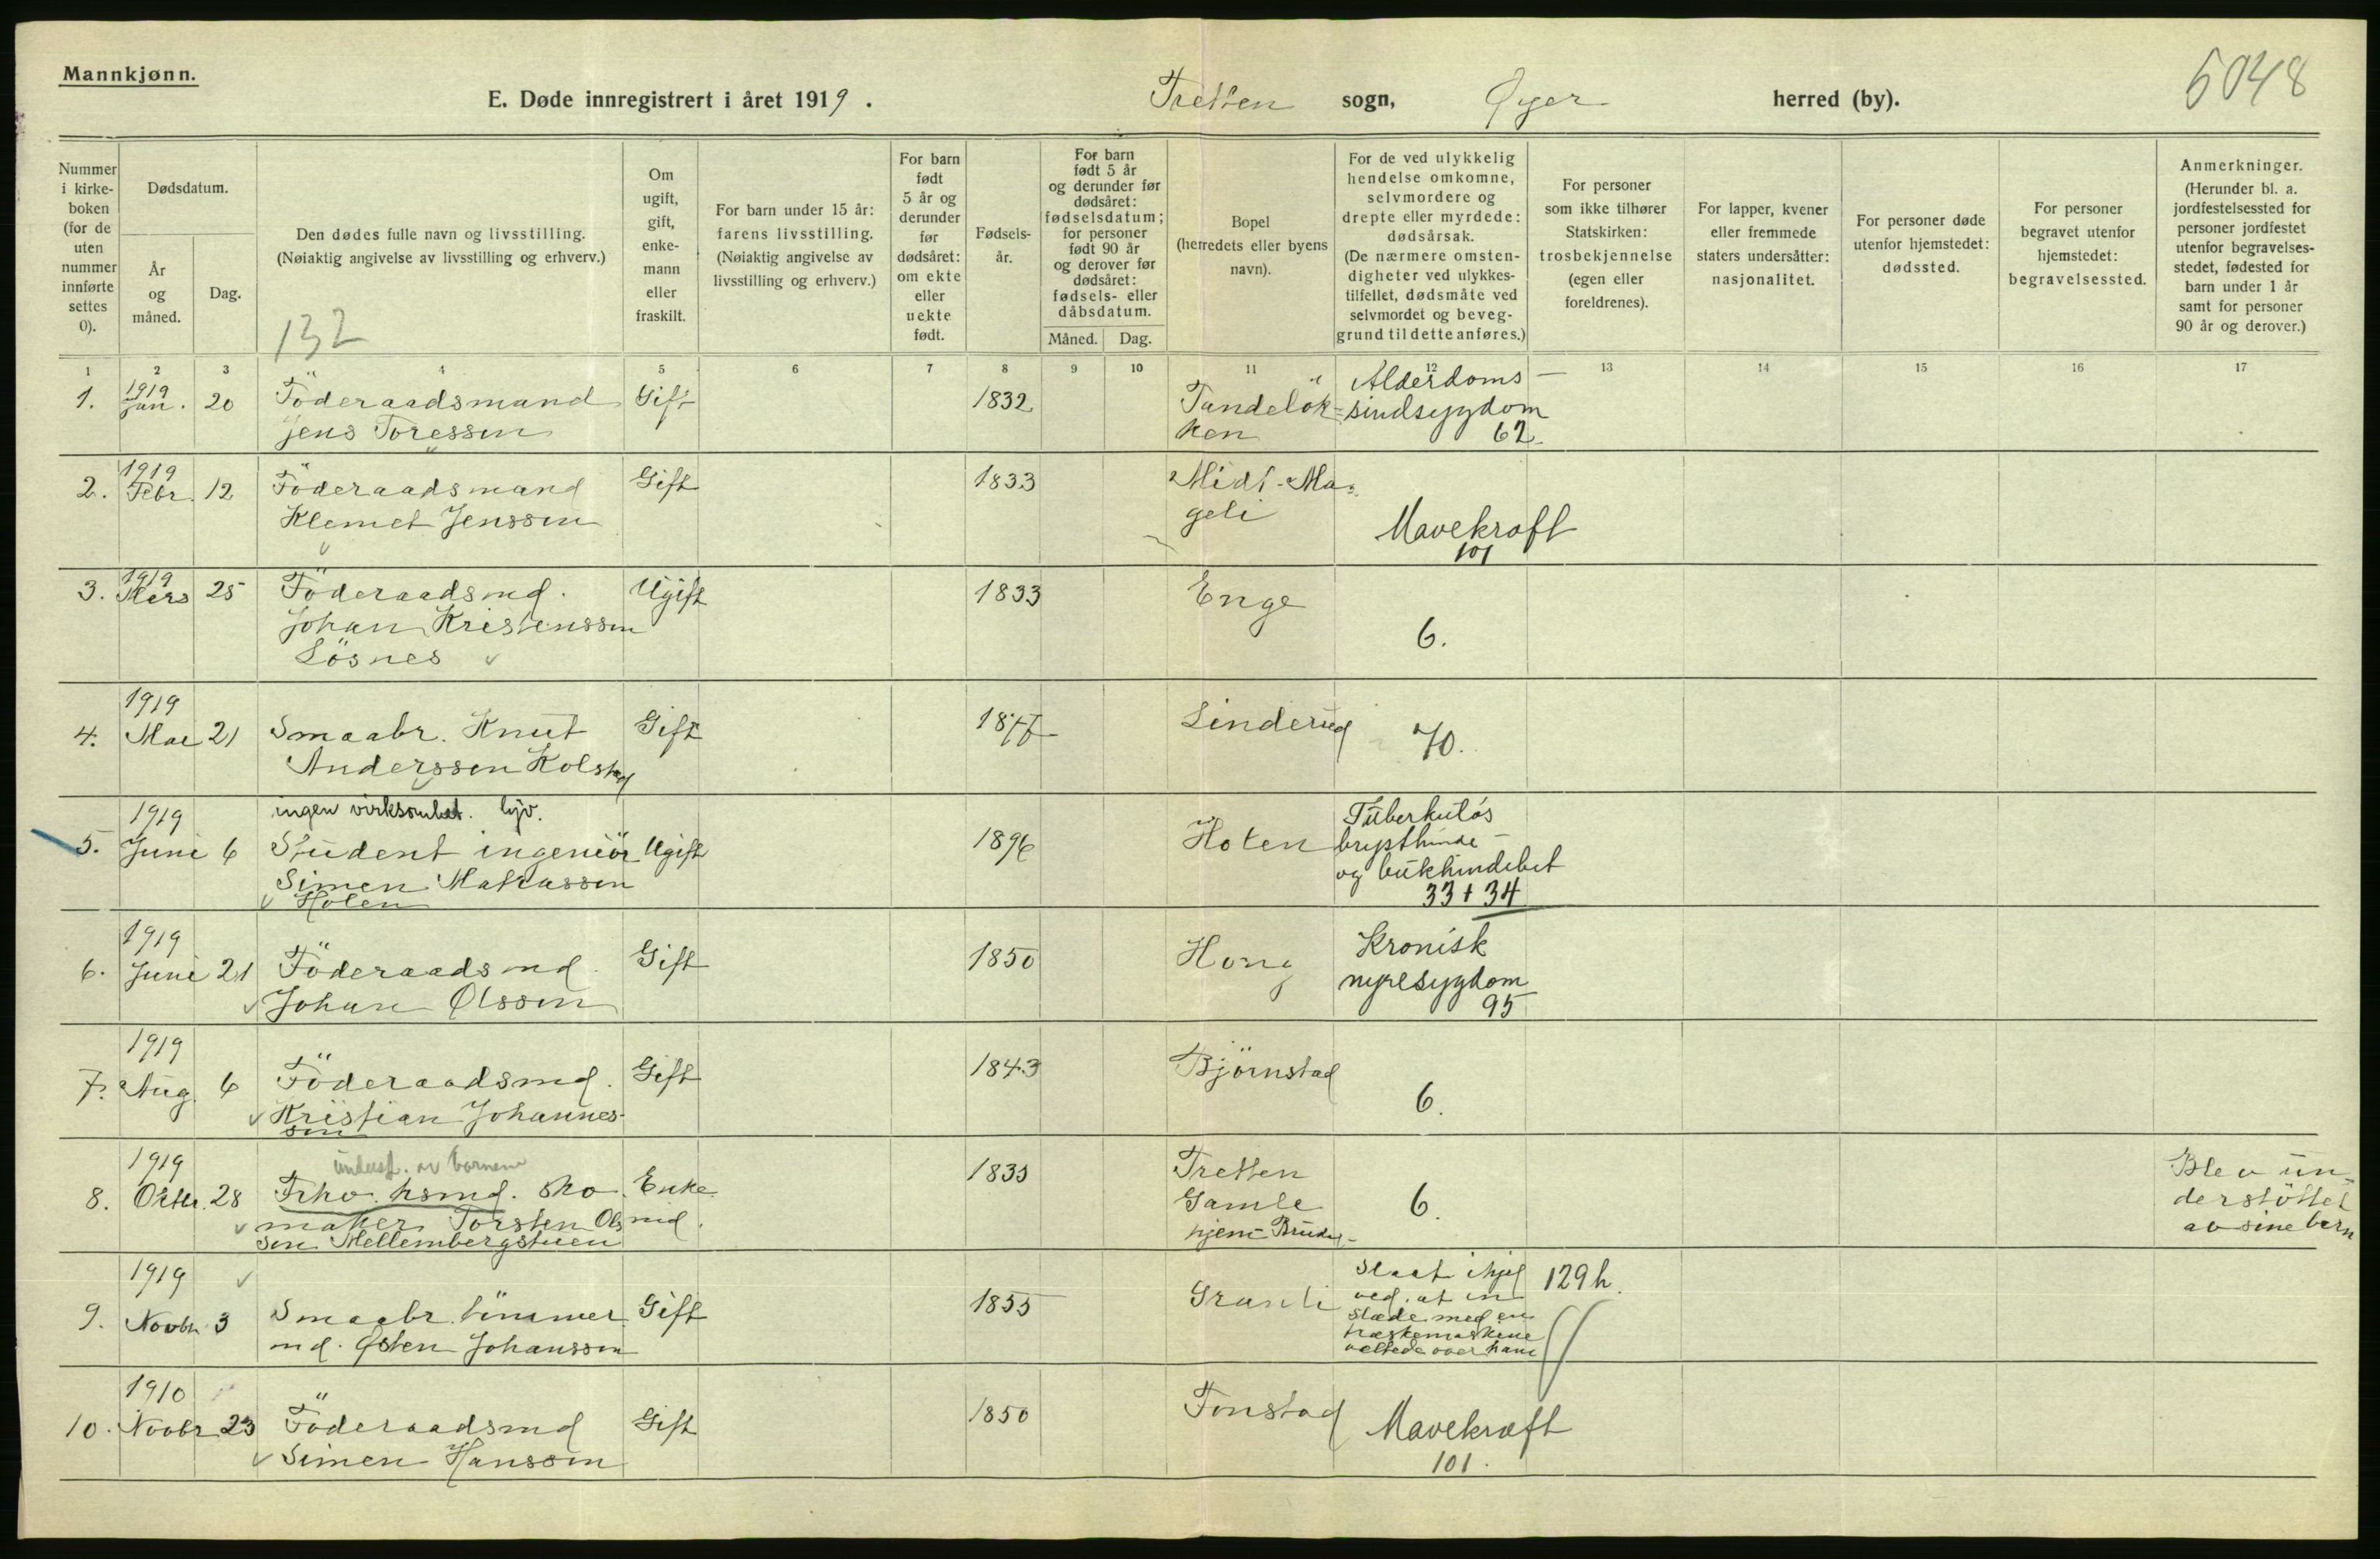 Mannkjønn.
E. Døde innregistrert i året 1919. Tretten sogn, Øyer herred (by).
5048
Nummer i kirke- boken (for de uten nummer innførte settes 0).
Dødsdatum.
År og måned.
Dag.
Den dødes fulle navn og livsstilling.
(Nøiaktig angivelse av livsstilling og erhverv.)
132
Om ugift, gift, enke- mann eller fraskilt.
For barn under 15 år: farens livsstilling. (Nøiaktig angivelse av livsstilling og erhverv.)
For barn født 5 år og derunder før dødsåret: om ekte eller uekte født.
Fødsels- år.
For barn født 5 år og derunder før dødsåret: fødselsdatum; for personer født 90 år og derover før dødsåret: fødsels- eller dåbsdatum.
Måned.
Dag.
Bopel (herredets eller byens navn).
For de ved ulykkelig hendelse omkomne, selvmordere og drepte eller myrdede: dødsårsak. (De nærmere omsten- digheter ved ulykkes- tilfellet, dødsmåte ved selvmordet og beveg- grund til dette anføres.)
For personer som ikke tilhører Statskirken: trosbekjennelse (egen eller foreldrenes).
For lapper, kvener eller fremmede staters undersåtter: nasjonalitet.
For personer døde utenfor hjemstedet: dødssted.
For personer begravet utenfor hjemstedet: begravelsessted.
Anmerkninger. (Herunder bl. a. jordfestelsessted for personer jordfestet utenfor begravelses- stedet, fødested for barn under 1 år samt for personer 90 år og derover.)
1 2 3 4 5 6 7 8 9 10 11 12 13 14 15 16 17
1. 1919 Jan. 20 Föderaadsmand Gift 1832 Tandelök= Alderdoms-
Jens Toressen ken sindsygdom
62.
2. 1919 Febr. 12 Föderaadsmand Gift 1833 Midt-Ma=
Klemet Jenssen geli Mavekræft
101
3. 1919 Mars 25 Föderaadsmd. Ugift 1833 Enge
Johan Kristenssen 6.
Lösnes
4. 1919 Mai 21 Smaabr. Knut Gift 1877 Linderud 70.
Anderssen Kolstad
ingen virksomhet. hjv.
5. 1919 Juni 6 Student ingeniör Ugift 1896 Holen Tuberkuløs
Simen Matiassen brysthinde-
Holen og bukhindebet
33 + 34
6. 1919 Juni 21 Föderaadsmd. Gift 1850 Hong Kronisk
Johan Olssen nyresygdom
95
7. 1919 Aug. 6 Föderaadsmd. Gift 1843 Björnstad
Kristian Johannes- 6.
sen
underst. av barnene
8. 1919 Oktbr. 28 Fhv. hsmd. sko- Enke- 1835 Tretten Blev un-
maker Torsten Ols- md. Gamle 6. derstöttet
sen Mellembergstuen hjem- av sine barn
9. 1919 Novbr. 3 Smaabr. tömmer- Gift 1855 Granli Slaat ihjel 129 h.
md. Østen Johanssen ved at en
slæde med en
træskemaskine
veltede over ham
10. 1910 Novbr. 23 Föderaadsmd Gift 1850 Fonstad Mavekræft
Simen Hanssen 101.